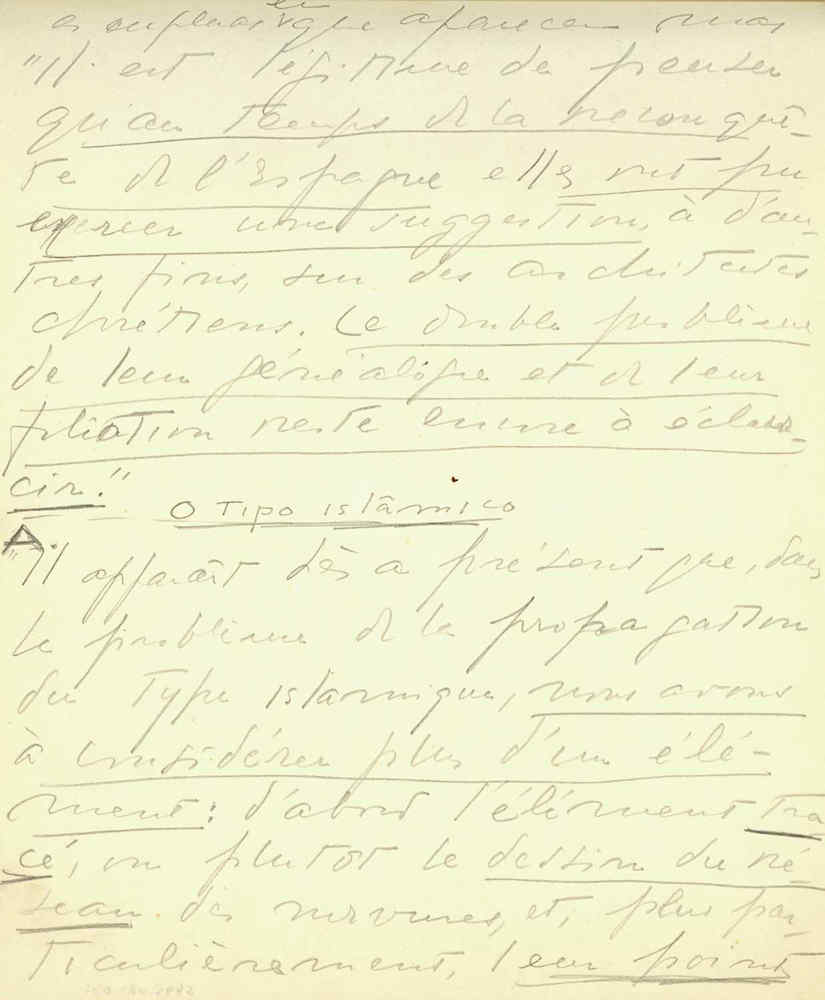 as em que aparecem mas
"Il est légitime de penser
qu'au temps de la reconquê-
te de l'Espagne elles ont pu
exercer une suggestion, à d'au-
tres fins, sur des architectes
chrétiens. Le double problème
de leur généalogie et de leur
filiation reste encore à éclair-
cir."
O Tipo islâmico
A.
"Il apparaît dès a présent que, dans
le problème de la propagation
du Type islamique, nous avons
à considérer plus d'un élé-
ment: d'abord l'élément tra
cé, ou plutôt le dessin du ré-
seau des nervures, et, plus par-
ticulièrement, leur point